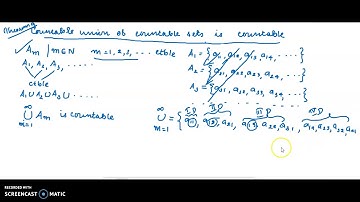 Theorem: Countable union of countable sets is countable
Am | m∈N m=1,2,3,... ctble
A1, A2, A3, .....
ctble
A1∪A2∪A3∪....
∞
∪ Am is countable
m=1
A1 = {a11, a12, a13, a14, ....}
A2 = {a21, a22, a23, a24, ....}
A3 = {a31, a32, a33, a34, ....}
∞
∪ = {a11, a12, a21, a13, a22, a31, a14, a23, a32, a41
m=1
RECORDED WITH
SCREENCAST-O-MATIC